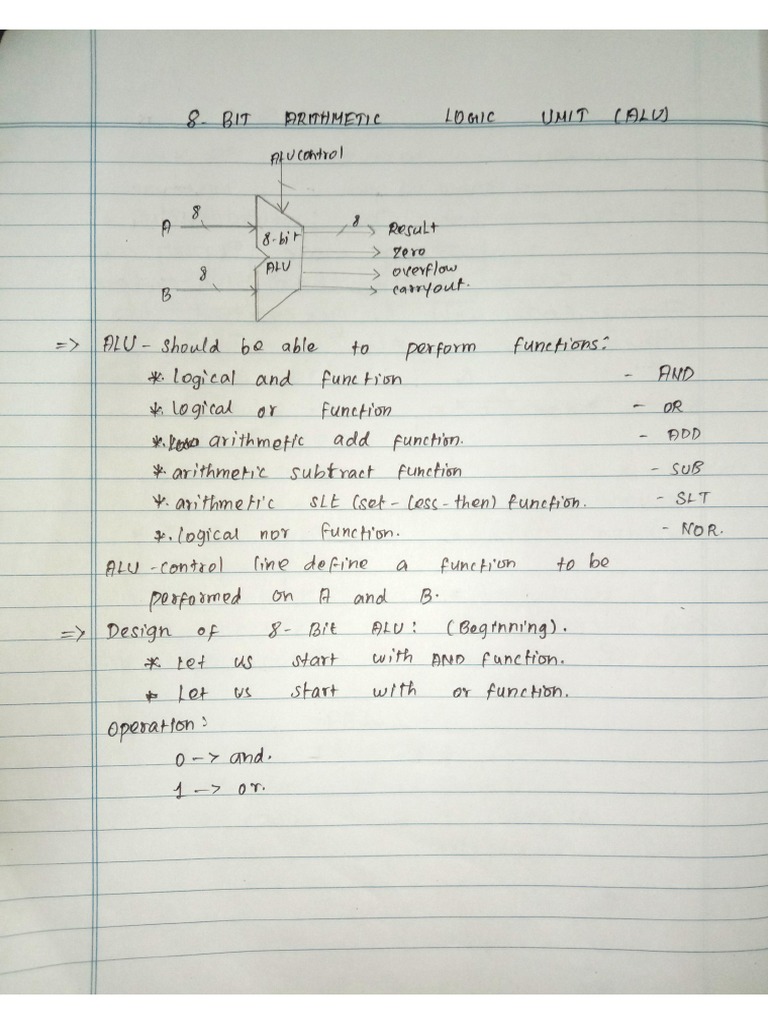 8- BIT ARITHMETIC LOGIC UNIT (ALU)
ALU control
A 8 8-bit 8 Result
zero
B 8 ALU overflow
carryout.
=> ALU - should be able to perform functions:
*. logical and function - AND
*. logical or function - OR
*. arithmetic add function. - ADD
*. arithmetic subtract function - SUB
*. arithmetic SLt (set-less-then) function. - SLT
*. logical nor function. - NOR.
ALU-control line define a function to be
performed on A and B.
=> Design of 8-Bit ALU: (Beginning).
* Let us start with AND function.
* Let us start with or function.
Operation:
0 -> and.
1 -> or.